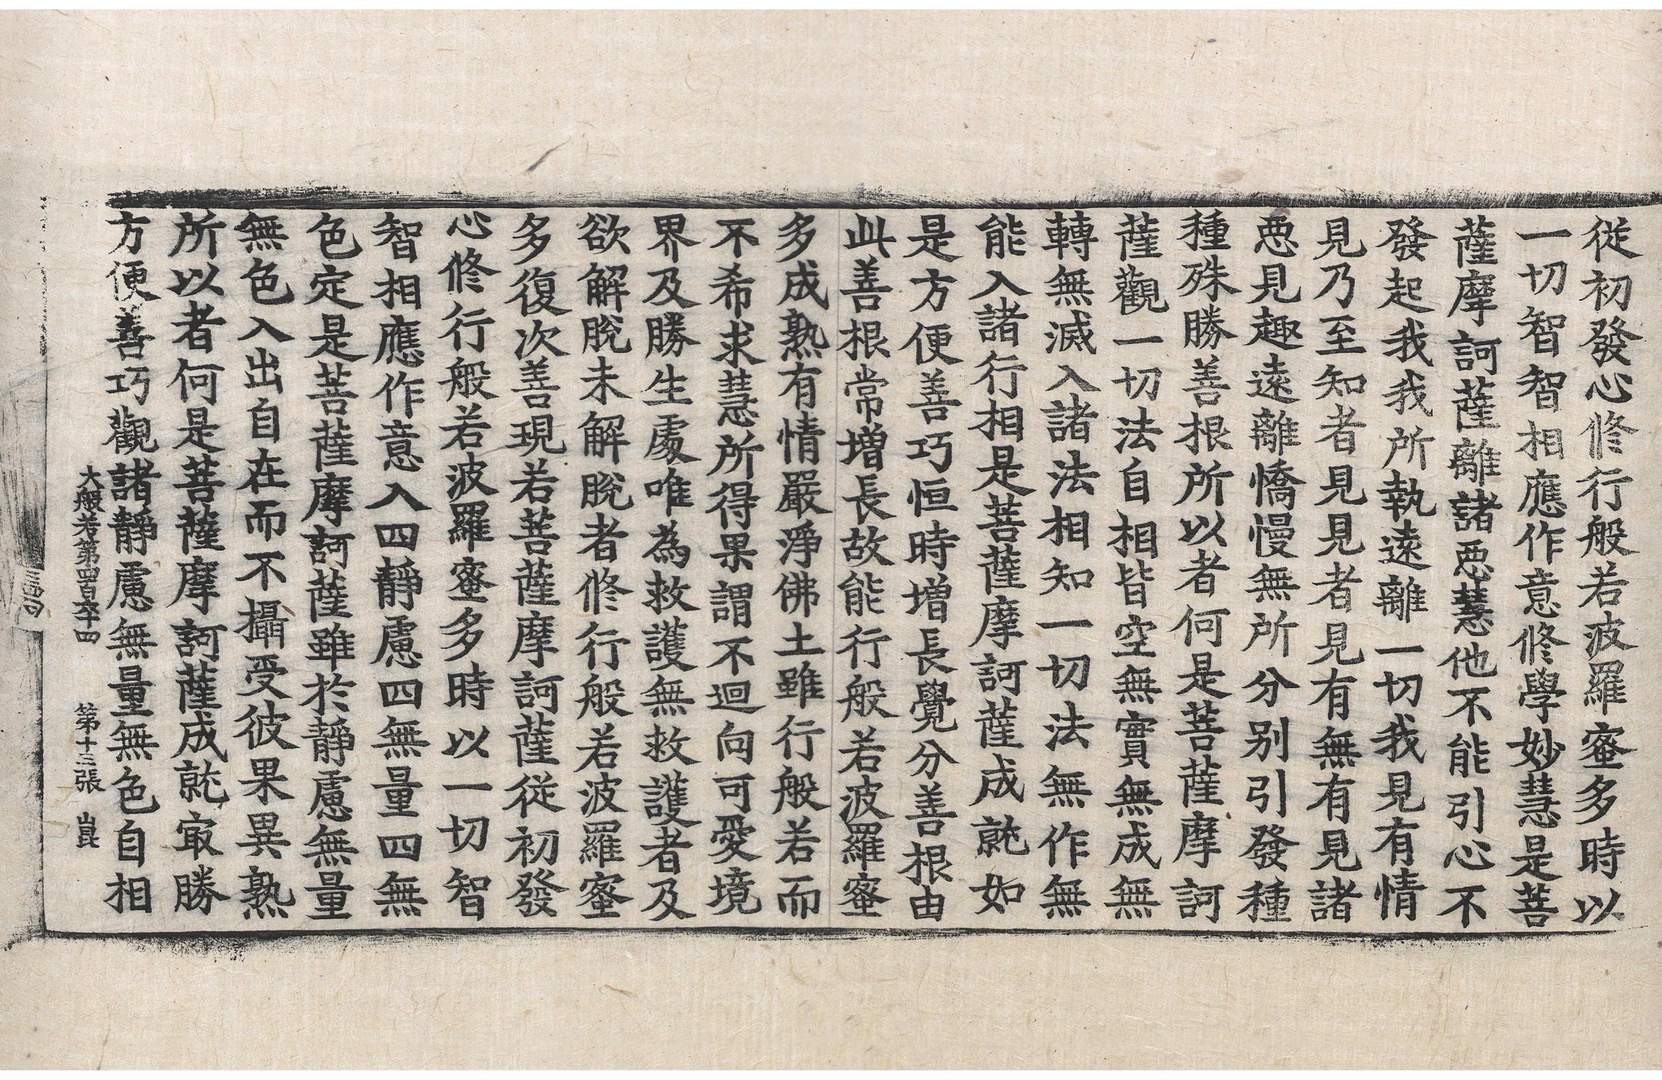 從初發心修行般若波羅蜜多時以
一切智智相應作意修學妙慧是菩
薩摩訶薩離諸惡慧他不能引心不
發起我我所執遠離一切我見有情
見乃至知者見見者見有無有見諸
惡見趣遠離憍慢無所分別引發種
種殊勝善根所以者何是菩薩摩訶
薩觀一切法自相皆空無實無成無
轉無滅入諸法相知一切法無作無
能入諸行相是菩薩摩訶薩成就如
是方便善巧恒時增長覺分善根由
此善根常增長故能行般若波羅蜜
多成熟有情嚴淨佛土雖行般若而
不希求慧所得果謂不迴向可愛境
界及勝生處唯為救護無救護者及
欲解脫未解脫者修行般若波羅蜜
多復次善現若菩薩摩訶薩從初發
心修行般若波羅蜜多時以一切智
智相應作意入四靜慮四無量四無
色定是菩薩摩訶薩雖於靜慮無量
無色入出自在而不攝受彼果異熟
所以者何是菩薩摩訶薩成就㝡勝
方便善巧觀諸靜慮無量無色自相
大般若第四百六十四 第十三張 崑